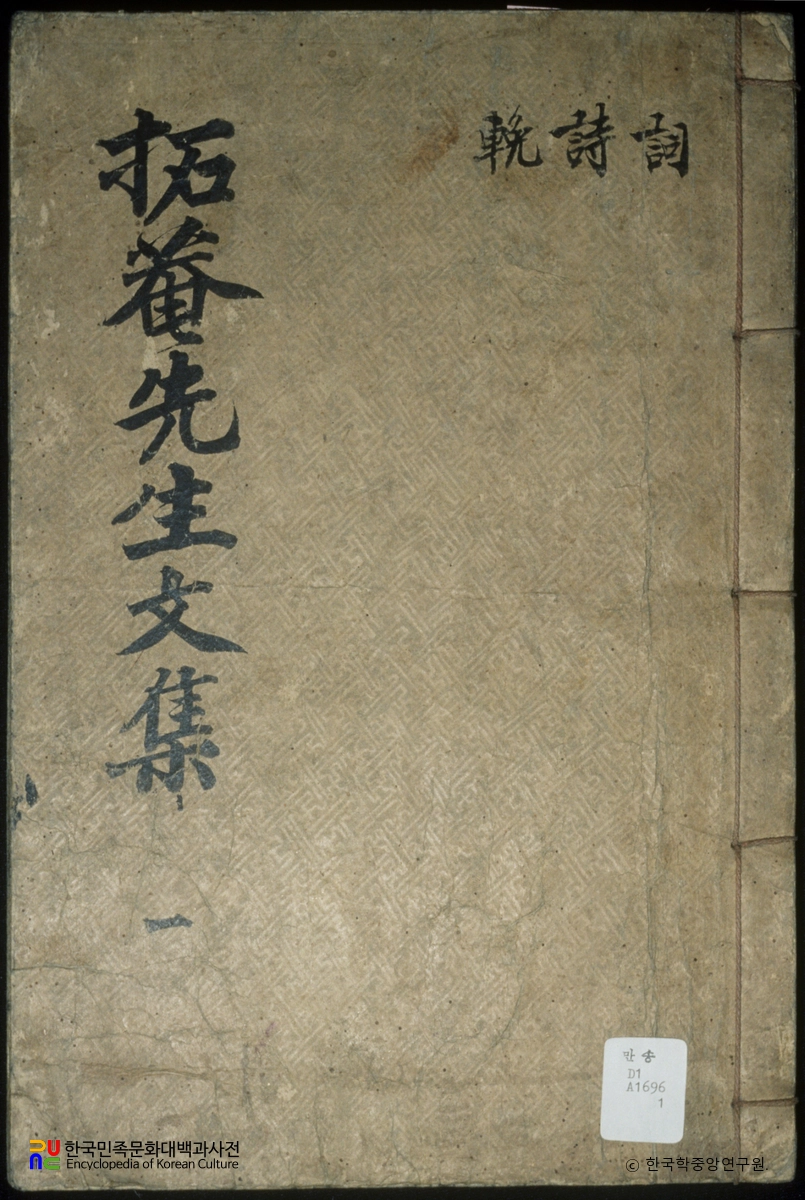 詞
詩
輓
拓菴先生文集 一
만송
D1
A1696
1
한국민족문화대백과사전
Encyclopedia of Korean Culture
ⓒ 한국학중앙연구원